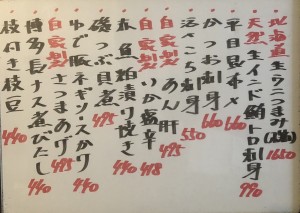 北海道生ウニつまみ 1650
天然生インド鮪トロ刺身 990
平目昆布〆 660
かつお刺身 660
刺身 550
自家製 あん肝 495
自家製 いか塩辛 418
赤魚粕漬け焼き 440
磯つぶ貝煮 495
ゆで豚ネギ 440
自家製さつまあげ 495
博多長ナス煮びたし 440
枝付き枝豆 440